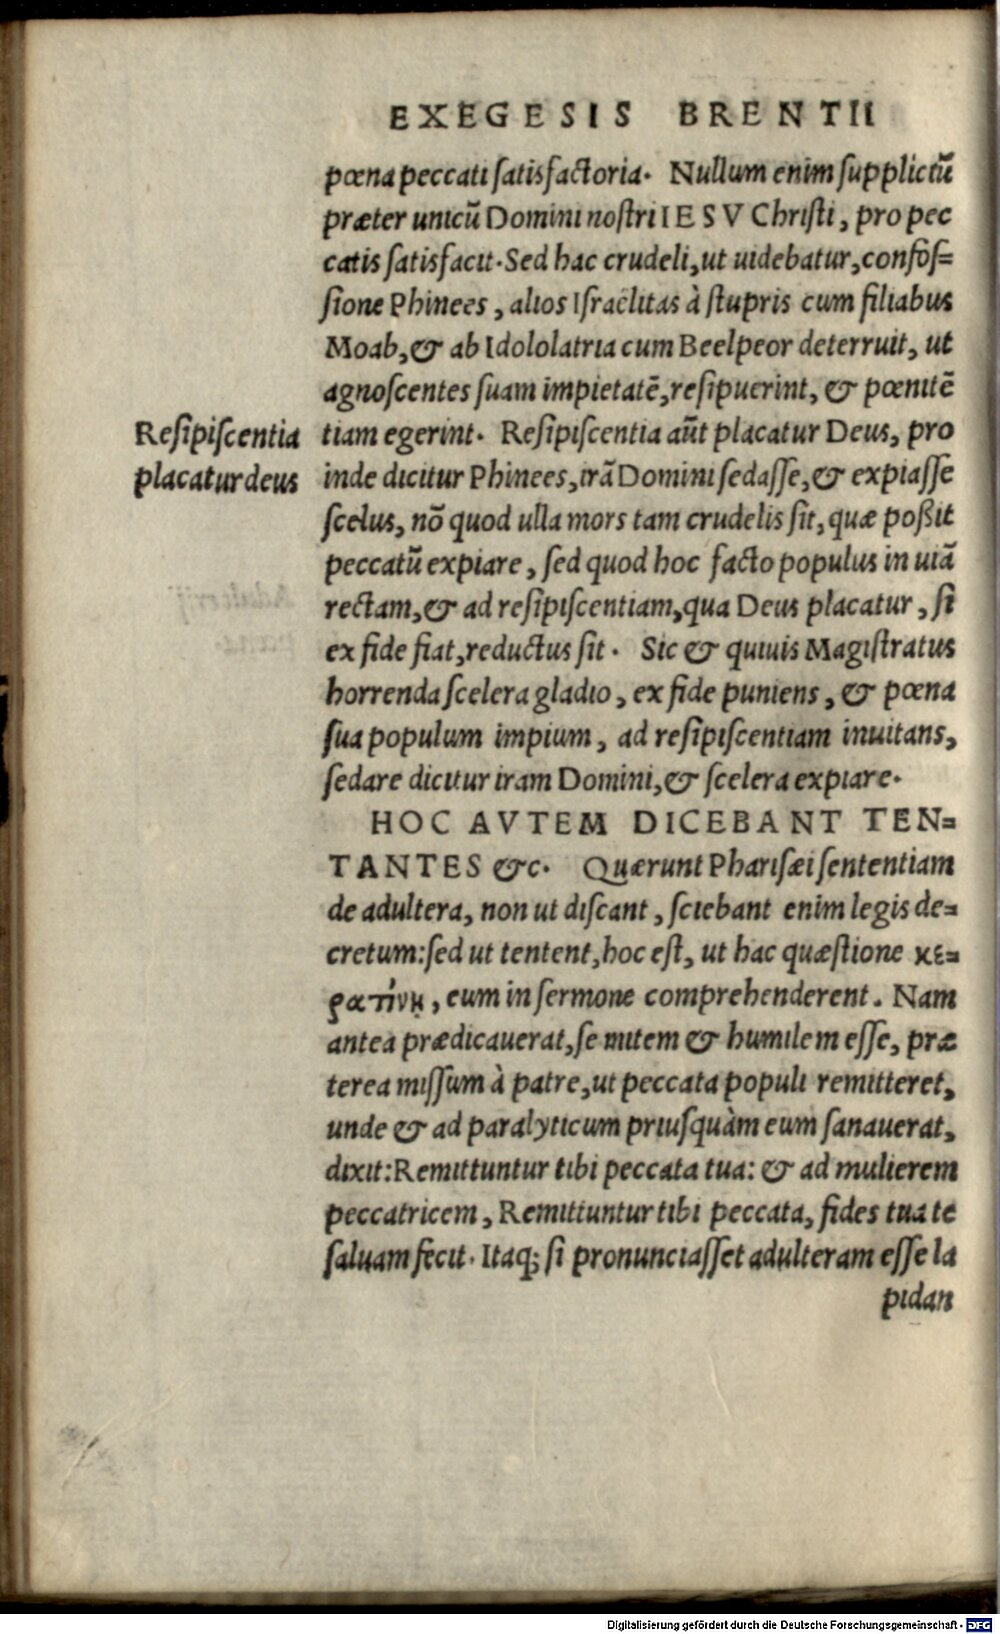 EXEGESIS BRENTII
pœna peccati satisfactoria. Nullum enim suppliciũ
præter unicũ Domini nostri IESV Christi, pro pec
catis satisfacit. Sed hac crudeli, ut uidebatur, confos=
sione Phinees, alios Israëlitas à stupris cum filiabus
Moab, & ab Idololatria cum Beelpeor deterruit, ut
agnoscentes suam impietatẽ, resipuerint, & pœnitẽ
Resipiscentia
placatur deus
tiam egerint. Resipiscentia aũt placatur Deus, pro
inde dicitur Phinees, irã Domini sedasse, & expiasse
scelus, nõ quod ulla mors tam crudelis sit, quæ poßit
peccatũ expiare, sed quod hoc facto populus in uiã
rectam, & ad resipiscentiam, qua Deus placatur, si
ex fide fiat, reductus sit. Sic & quiuis Magistratus
horrenda scelera gladio, ex fide puniens, & pœna
sua populum impium, ad resipiscentiam inuitans,
sedare dicitur iram Domini, & scelera expiare.
HOC AVTEM DICEBANT TEN=
TANTES &c. Quærunt Pharisæi sententiam
de adultera, non ut discant, sciebant enim legis de=
cretum: sed ut tentent, hoc est, ut hac quæstione κε=
ρατίνῃ, eum in sermone comprehenderent. Nam
antea prædicauerat, se mitem & humilem esse, præ
terea missum à patre, ut peccata populi remitteret,
unde & ad paralyticum priusquàm eum sanauerat,
dixit: Remittuntur tibi peccata tua: & ad mulierem
peccatricem, Remittuntur tibi peccata, fides tua te
saluam fecit. Itaq; si pronunciasset adulteram esse la
pidan
Digitalisierung gefördert durch die Deutsche Forschungsgemeinschaft - DFG